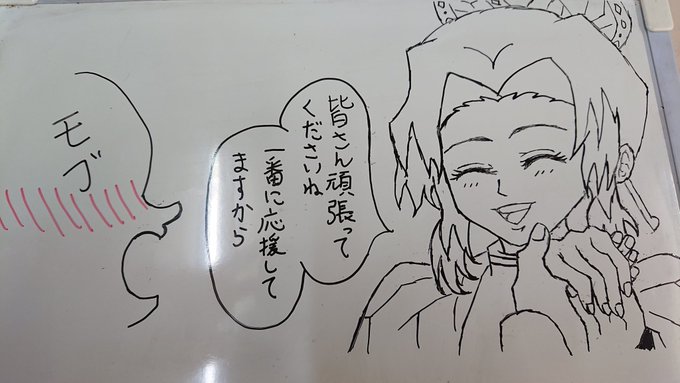 皆さん頑張って
くださいね
一番に応援して
ますから
モブ